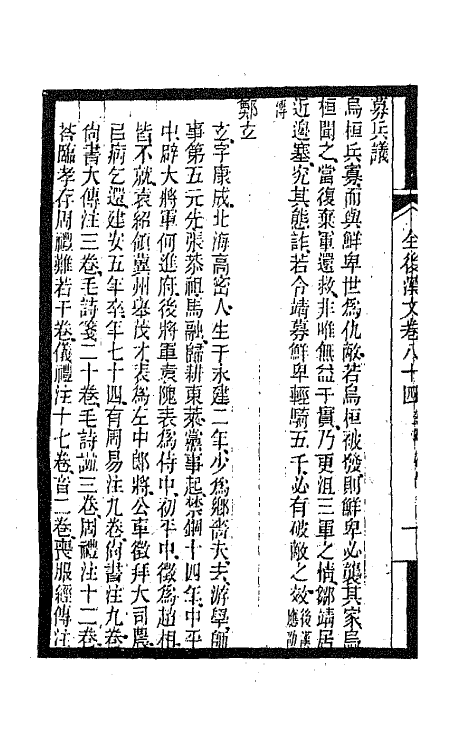 全後漢文卷八十四
募兵議
烏桓兵寡而與鮮卑世為仇敵若烏桓被發則鮮卑必襲其家烏
桓聞之當復棄軍還救非唯無益于實乃更沮三軍之情鄒靖居
近邊塞究其態詐若令靖募鮮卑輕騎五千必有破敵之效後漢應劭
傳
鄭玄
玄字康成北海高密人生于永建二年少為鄉嗇夫去游學師
事第五元先張恭祖馬融歸耕東萊黨事起禁錮十四年中平
中辟大將軍何進府後將軍袁隗表為侍中初平中徵為趙相
皆不就袁紹領冀州舉茂才表為左中郎將公車徵拜大司農
㠯病乞還建安五年卒年七十四有周易注九卷尚書注九卷
尚書大傳注三卷毛詩箋二十卷毛詩譜三卷周禮注十二卷
荅臨孝存周禮難若干卷儀禮注十七卷音二卷喪服經傳注